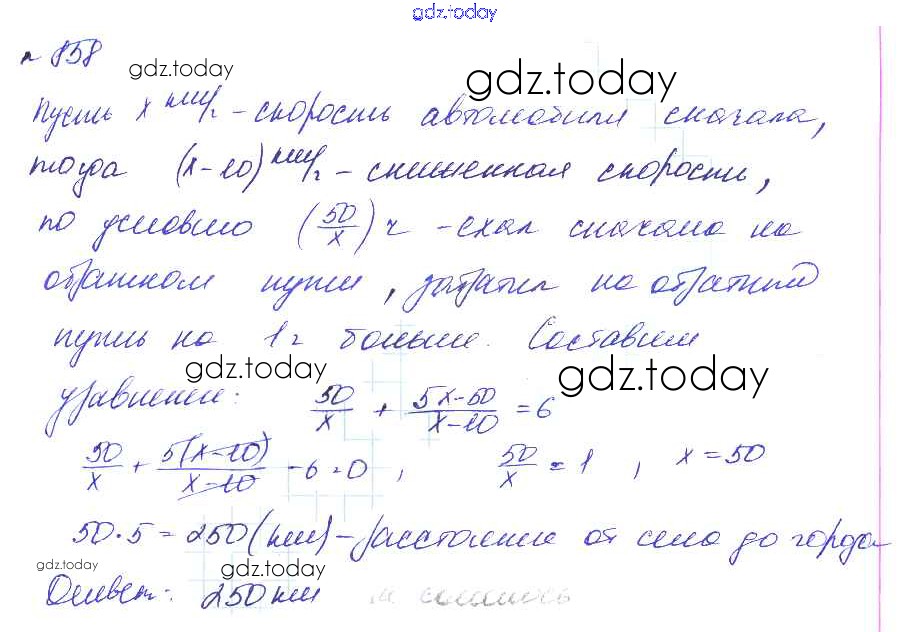 gdz.today
№ 858
gdz.today
gdz.today
Пусть x км/ч – скорость автомобиля сначала,
тогда (x-10) км/ч – сниженная скорость,
по условию (50/x) ч – ехал сначала на
обратном пути, затратил на обратный
путь на 1ч больше. Составим
gdz.today
gdz.today
уравнение: 50/x + 5x-50/x-10 = 6
50/x + 5(x-10)/x-10 - 6=0, 50/x = 1, x=50
50·5=250(км) – расстояние от села до города
gdz.today
gdz.today
Ответ: 250 км